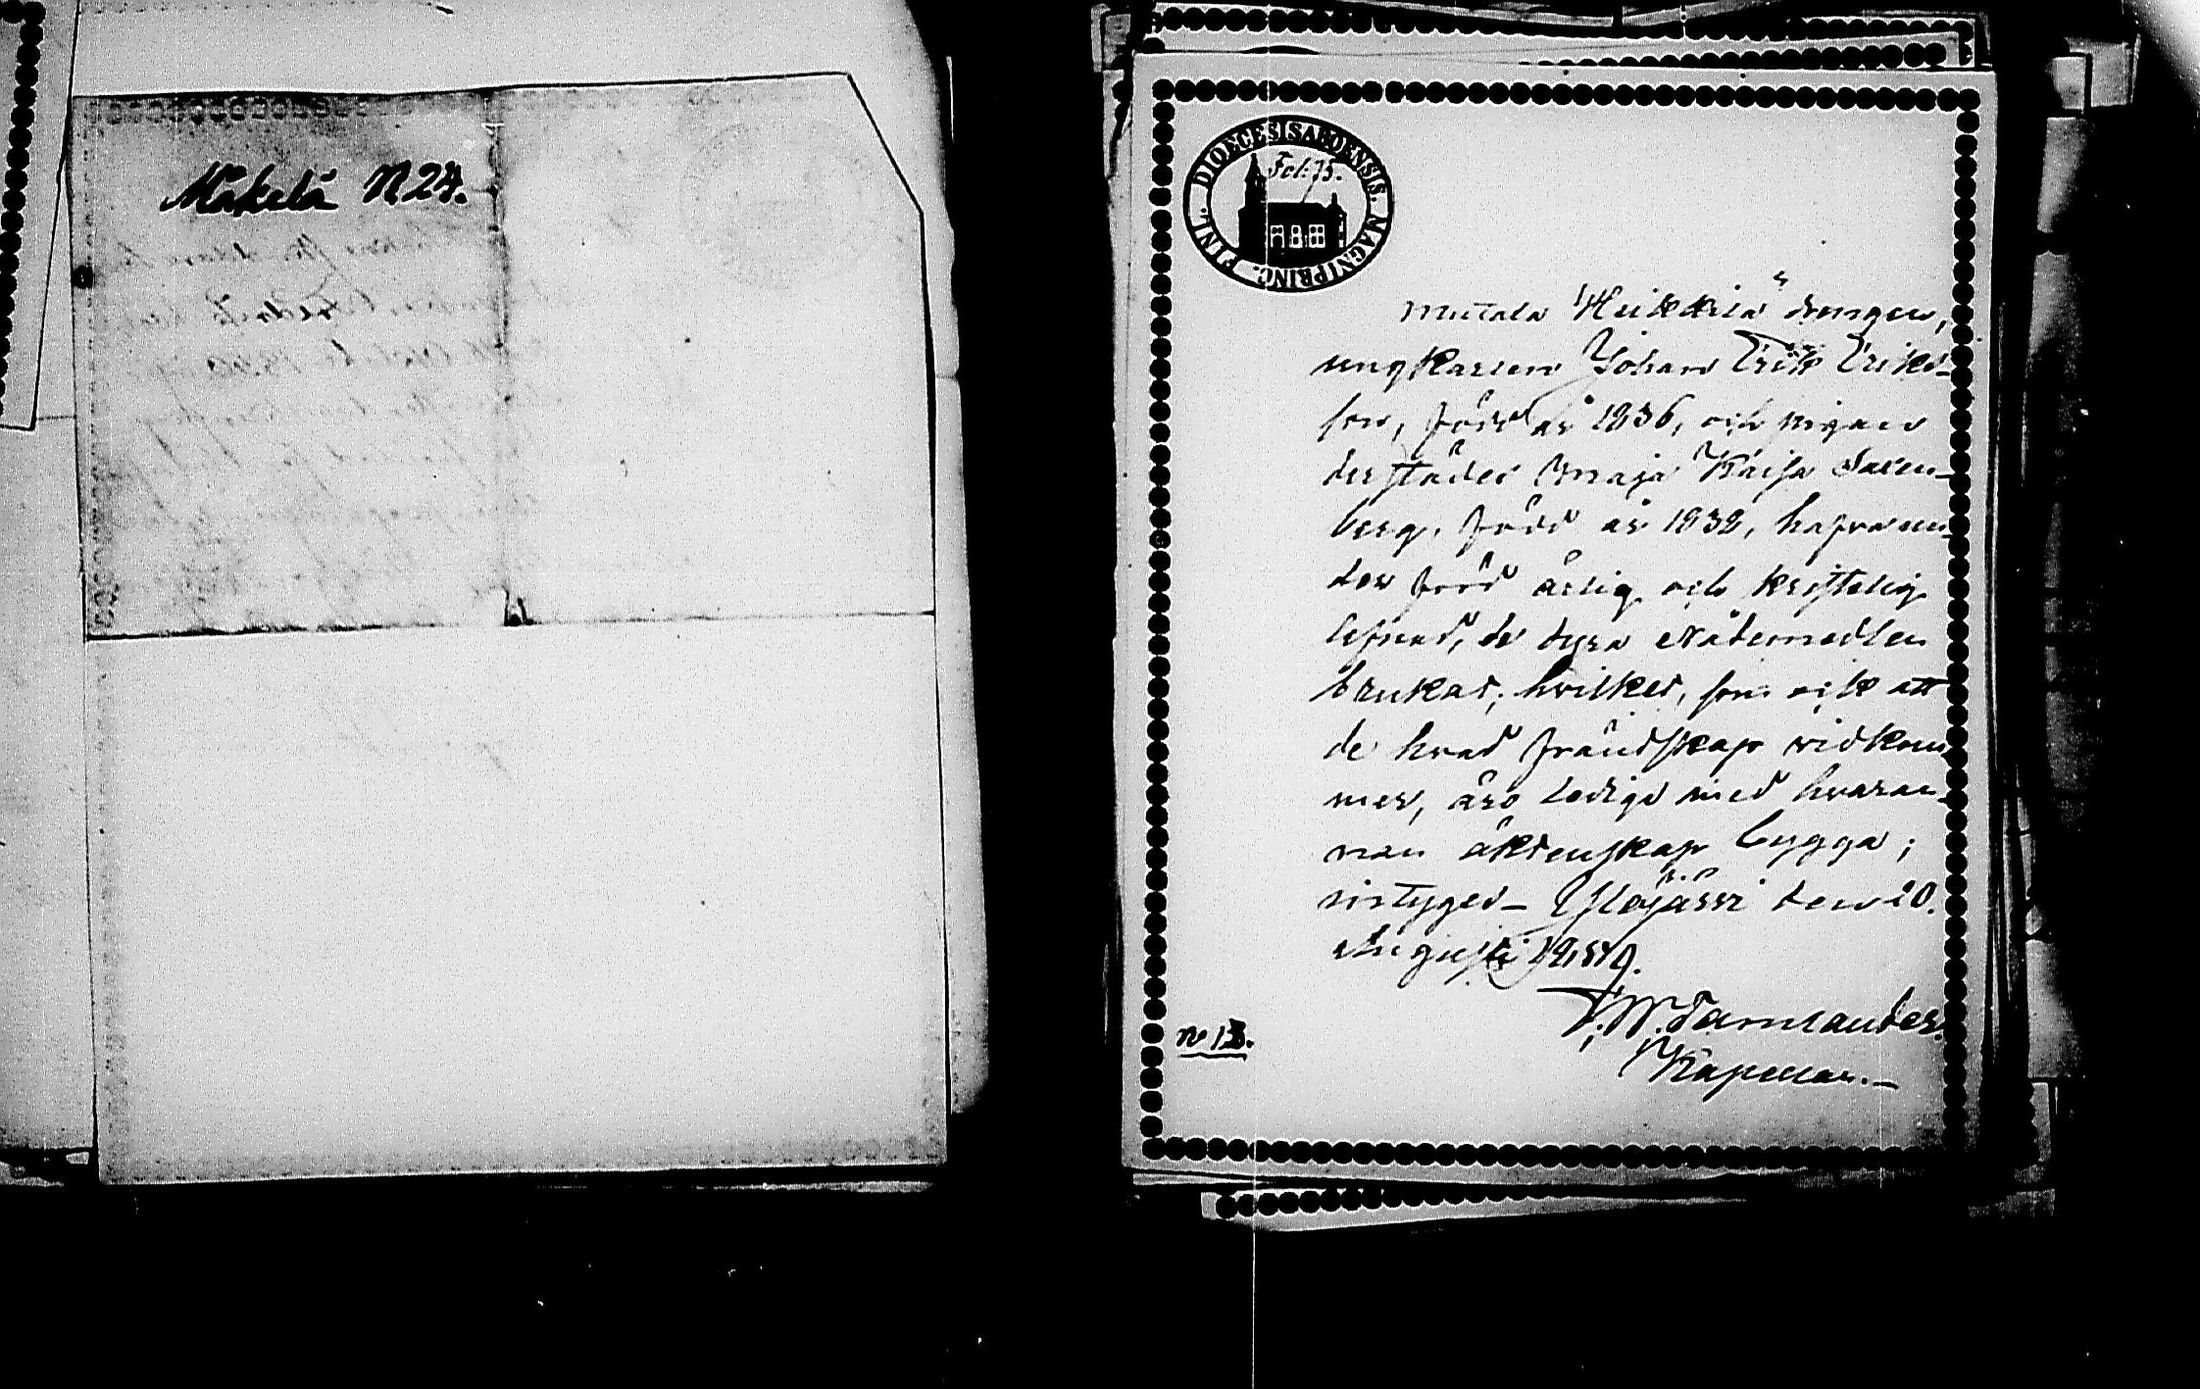 Mäkelä N 24.
DIOECESIS ABOENSIS. MAGNI PRINC. FINL.
Fol: 75.
Mutala Heikkilä drengen,
ungkarlen Johan Erik Eriks-
son, född år 1836, och pigan
derstädes Maja Kaisa Saren-
berg, född år 1832, hafva un-
der förd ärlig och kristelig
lefnad, de dyra Nådemedlen
brukat; hvilket, som ock att
de hvad frändskap vidkom-
mer, äro lediga med hvaran-
nan äktenskap bygga;
intyged_ Ylöjärvi den 20.
Augusti 1859.
Tamlander.
Kapellan._
No 13.